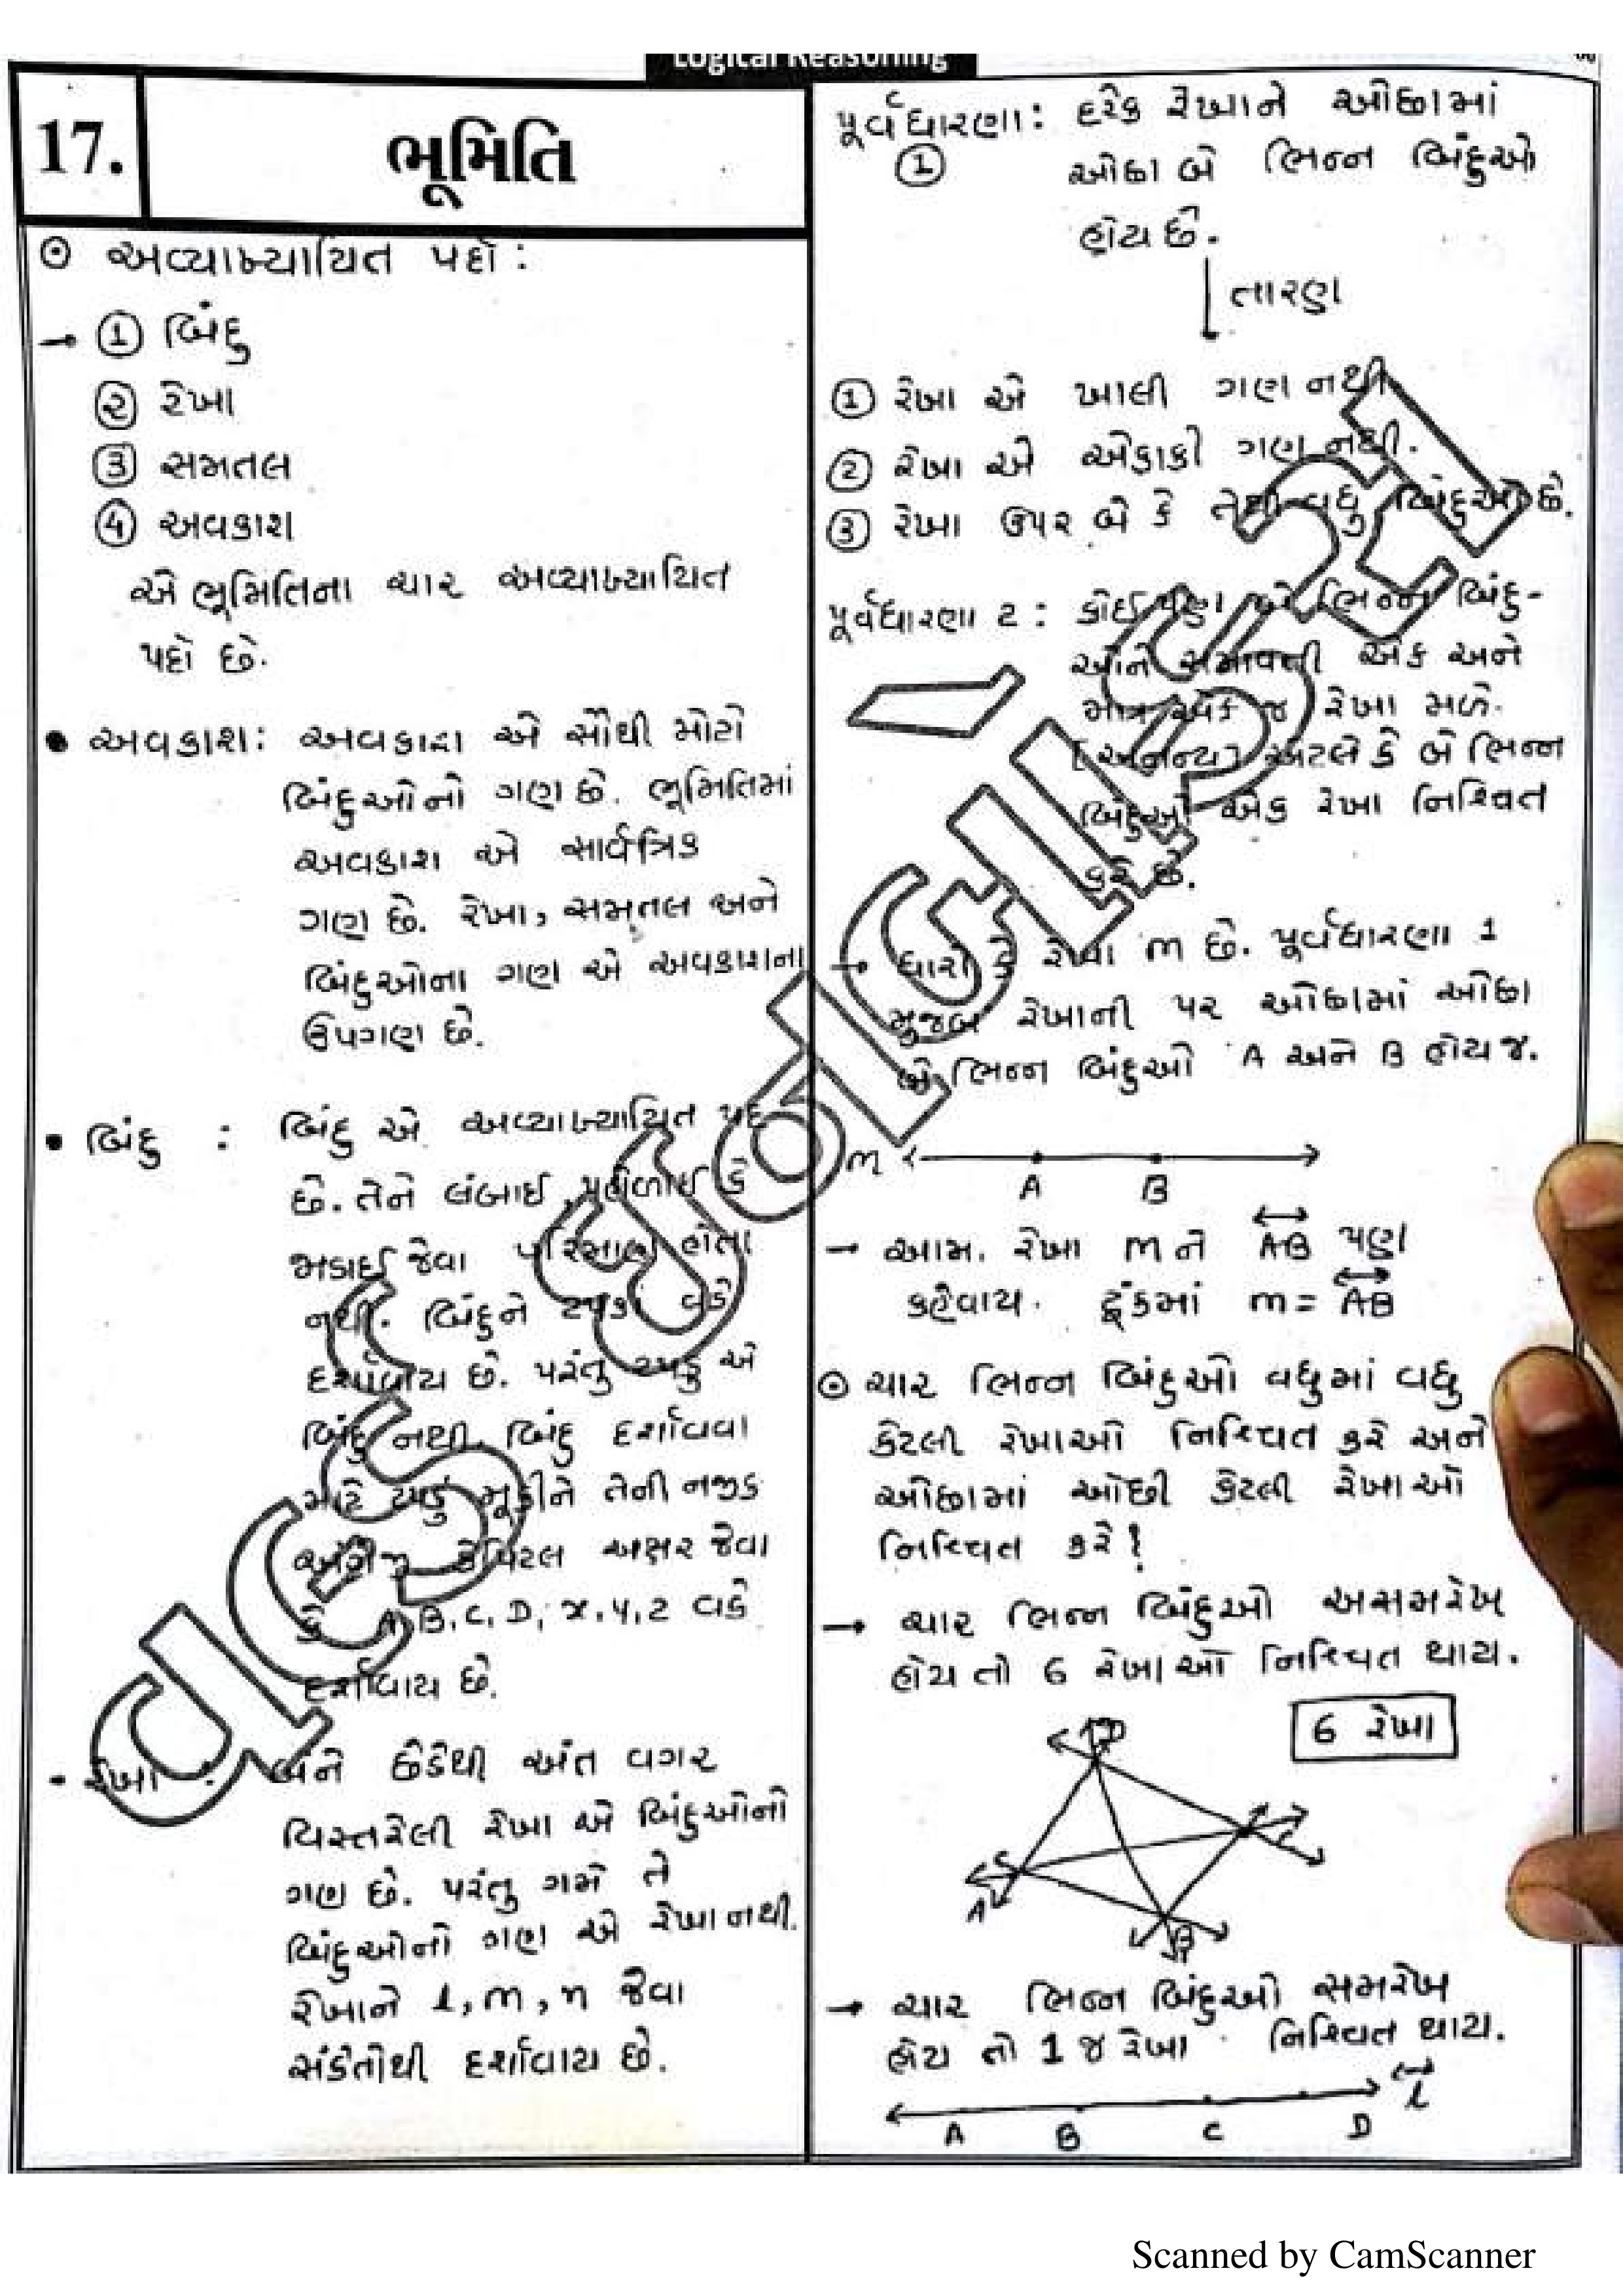 Logical Reasoning
17.
ભૂમિતિ
⊙ અવ્યાખ્યાયિત પદો :
→ ① બિંદુ
② રેખા
③ સમતલ
④ અવકાશ
એ ભૂમિતિના ચાર અવ્યાખ્યાયિત
પદો છે.
• અવકાશ: અવકાશ એ સૌથી મોટો
બિંદુઓનો ગણ છે. ભૂમિતિમાં
અવકાશ એ સાર્વત્રિક
ગણ છે. રેખા, સમતલ અને
બિંદુઓના ગણ એ અવકાશના
ઉપગણ છે.
• બિંદુ : બિંદુ એ અવ્યાખ્યાયિત પદ
છે. તેને લંબાઈ, પહોળાઈ કે
જાડાઈ જેવા પરિમાણ હોતા
નથી. બિંદુને ટપકા વડે
દર્શાવાય છે. પરંતુ ટપકુ એ
બિંદુ નથી. બિંદુ દર્શાવવા
માટે ટપકુ મૂકીને તેની નજીક
અંગ્રેજી કેપિટલ અક્ષર જેવા
કે A, B, C, D, x, y, z વડે
દર્શાવાય છે.
- રેખા : બંને છેડેથી અંત વગર
વિસ્તરેલી રેખા એ બિંદુઓનો
ગણ છે. પરંતુ ગમે તે
બિંદુઓનો ગણ એ રેખા નથી.
રેખાને l, m, n જેવા
સંકેતોથી દર્શાવાય છે.
પૂર્વધારણા: દરેક રેખાને ઓછામાં
① ઓછા બે ભિન્ન બિંદુઓ
હોય છે.
તારણ
① રેખા એ ખાલી ગણ નથી
② રેખા એ એકાકી ગણ નથી.
③ રેખા ઉપર બે કે તેથી વધુ બિંદુઓ છે.
પૂર્વધારણા 2 : કોઈ પણ બે ભિન્ન બિંદુ-
ઓને સમાવતી એક અને
માત્ર એક જ રેખા મળે.
[અનન્ય] એટલે કે બે ભિન્ન
બિંદુઓ એક રેખા નિશ્ચિત
કરે છે.
→ ધારો કે રેખા m છે. પૂર્વધારણા 1
મુજબ રેખાની પર ઓછામાં ઓછા
બે ભિન્ન બિંદુઓ A અને B હોય જ.
m
A B
→ આમ. રેખા m ને AB પણ
કહેવાય. ટૂંકમાં m = AB
⊙ ચાર ભિન્ન બિંદુઓ વધુમાં વધુ
કેટલી રેખાઓ નિશ્ચિત કરે અને
ઓછામાં ઓછી કેટલી રેખાઓ
નિશ્ચિત કરે!
→ ચાર ભિન્ન બિંદુઓ અસમરેખ
હોય તો 6 રેખાઓ નિશ્ચિત થાય.
6 રેખા
D
C
A
B
→ ચાર ભિન્ન બિંદુઓ સમરેખ
હોય તો 1 જ રેખા નિશ્ચિત થાય.
l
A B C D
Scanned by CamScanner